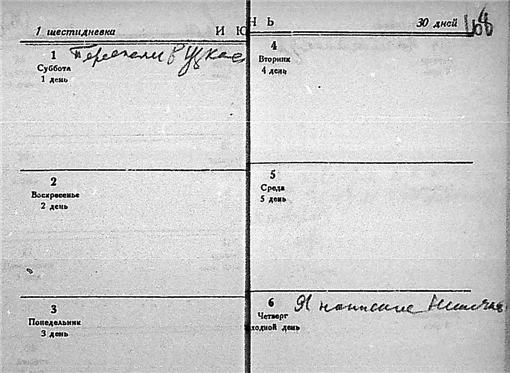 1 шестидневка И Ю Н Ь 30 дней
1 Переехали в Узкое
Суббота
1 день
2
Воскресенье
2 день
3
Понедельник
3 день
4
Вторник
4 день
5
Среда
5 день
6 Я написала
Четверг
ходной день